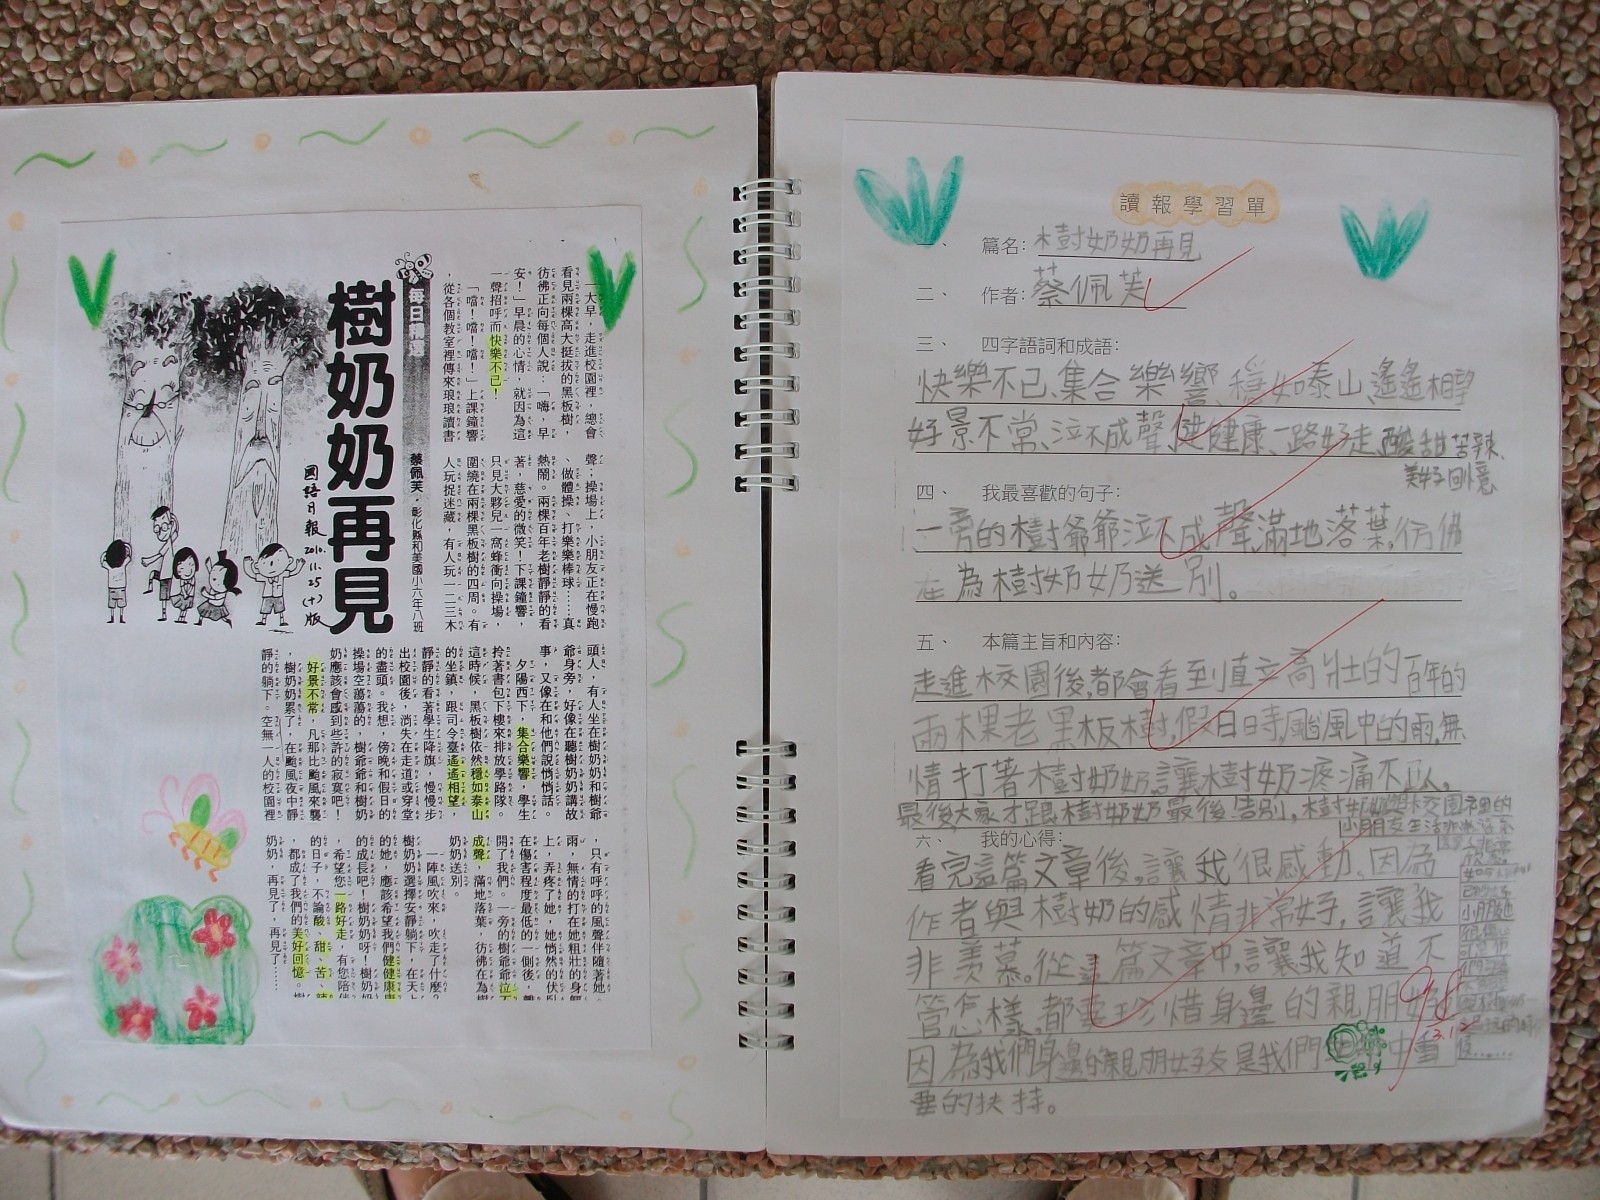 每日精選
樹奶奶再見
蔡佩芙．彰化縣和美國小六年八班
國語日報 2010.11.25(十)版
一大早，走進校園裡，總會
看見兩棵高大挺拔的黑板樹，
彷彿正向每個人說：「嗨，早
安！」早晨的心情，就因為這
一聲招呼而快樂不已！
「噹！噹！噹！」上課鐘響
，從各個教室裡傳來琅琅讀書
聲；操場上，小朋友正在慢跑
、做體操、打樂樂棒球……真
熱鬧。兩棵百年老樹靜靜的看
著，慈愛的微笑！下課鐘響，
只見大夥兒一窩蜂衝向操場，
圍繞在兩棵黑板樹的四周。有
人玩捉迷藏，有人玩一二三木
頭人，有人坐在樹奶奶和樹爺
爺身旁，好像在聽樹奶奶講故
事，又像在和他們說悄悄話。
夕陽西下，集合樂響，學生
拎著書包下樓來排放學路隊。
這時候，黑板樹依然穩如泰山
的坐鎮，跟司令臺遙遙相望，
靜靜的看著學生降旗，慢慢步
出校園後，消失在走道或穿堂
的盡頭。我想，傍晚和假日的
操場空蕩蕩的，樹爺爺和樹奶
奶應該會感到些許的寂寞吧！
好景不常，凡那比颱風來襲
，樹奶奶累了，在颱風夜中靜
靜的躺下。空無一人的校園裡
，只有呼呼的風聲伴隨著她。
雨，無情的打在她粗壯的身軀
上，弄疼了她，她悄然的伏臥
在傷害程度最低的一側後，離
開了我們。一旁的樹爺爺泣不
成聲，滿地落葉，彷彿在為樹
奶奶送別。
一陣風吹來，吹走了什麼？
樹奶奶選擇安靜躺下，在天上
的她，應該希望我們健健康康
的成長吧！樹奶奶呀！樹奶奶
，希望您一路好走，有您陪伴
的日子，不論酸、甜、苦、辣
，都成了我們的美好回憶。樹
奶奶，再見了，再見了……
讀報學習單
一、 篇名：樹奶奶再見
二、 作者：蔡佩芙
三、 四字語詞和成語：
快樂不已、集合樂響、穩如泰山、遙遙相望
好景不常、泣不成聲、健健康康、一路好走、酸甜苦辣、
美好回憶
四、 我最喜歡的句子：
一旁的樹爺爺泣不成聲，滿地落葉，彷彿
在為樹奶奶送別。
五、 本篇主旨和內容：
走進校園後，都會看到直立高壯的百年的
兩棵老黑板樹，假日時，颱風中的雨，無
情打著樹奶奶，讓樹奶疼痛不以。
最後，大家才跟樹奶奶最後告別，樹奶奶與校園裡的
六、 我的心得：
看完這篇文章後，讓我很感動，因為
作者與樹奶的感情非常好，讓我
非羨慕。從這篇文章中，讓我知道不
管怎樣，都要珍惜身邊的親朋好
因為我們身邊的親朋好友是我們
重的扶持。
98